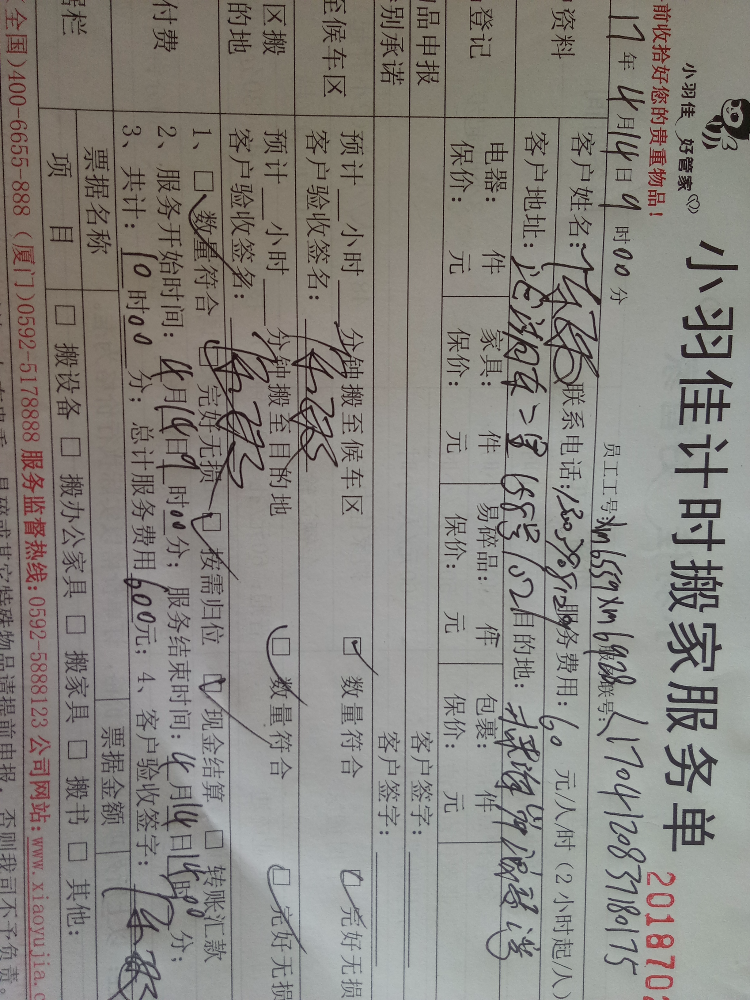 小羽佳 好管家
小羽佳计时搬家服务单
201870
前收拾好您的贵重物品！
17年4月14日9时00分 员工工号:xm6559 xm6928 联号: 1704120837180175
资料 客户姓名: 联系电话: 服务费用: 60 元/人/时（2小时起/人）
客户地址: 目的地:
登记 电器: 件 家具: 件 易碎品: 件 包裹: 件
保价: 元 保价: 元 保价: 元 保价: 元
品申报 客户签字:
别承诺 客户签字:
至候车区 预计__小时__分钟搬至候车区 ☑ 数量符合 ☑ 完好无损
客户验收签名:
区搬 预计__小时__分钟搬至目的地 ☑ 数量符合 ☑ 完好无损
的地 客户验收签名:
付费 1、☑ 数量符合 ☑ 完好无损 ☑ 按需归位 ☑ 现金结算 □ 转账汇款
2、服务开始时间: 4月14日9时00分；服务结束时间: 4月14日 时00分；
3、共计: 10时00分；总计服务费用600元；4、客户验收签字:
据栏 票据名称 票据金额
项目 □ 搬设备 □ 搬办公家具 □ 搬家具 □ 搬书 □ 其他:
全国)400-6655-888（厦门)0592-5178888 服务监督热线:0592-5888123 公司网站:www.xiaoyujia.c
易碎或其它特殊物品请提前申报，否则我司不予负责。